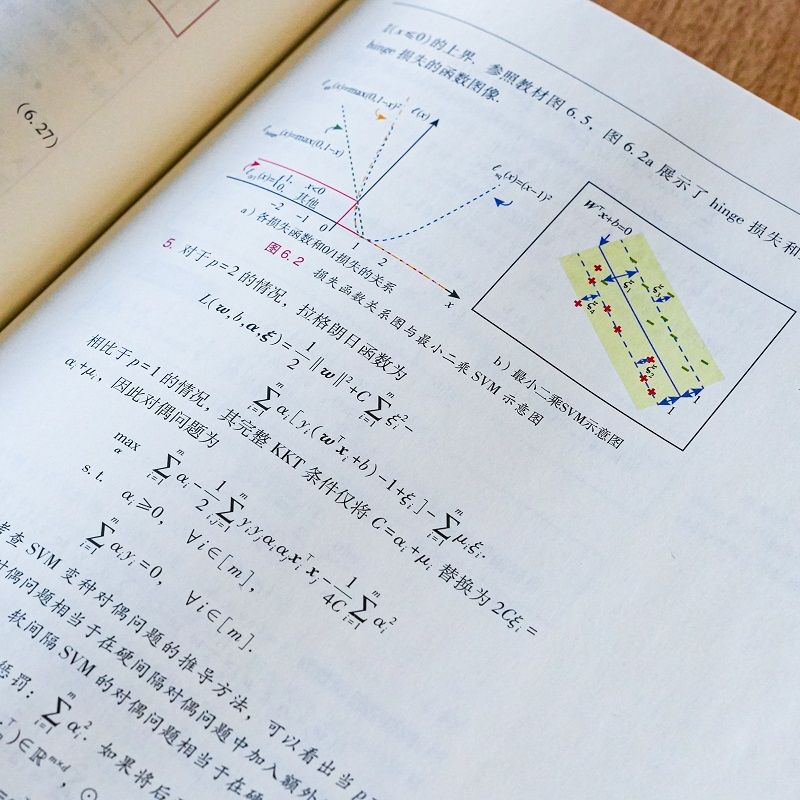 (6.27)
(x≤0)的上界. 参照教材图 6.5, 图 6.2a 展示了 hinge 损失和
hinge 损失的函数图像.
(x)=max(0,1−x)²
ℓ(x)
(x)=max(0,1−x)
1, x<0
0, 其他
−2 −1 0 1 2
x
ℓsq(x)=(x−1)²
a）各损失函数和0/1损失的关系
wᵀx+b=0
ξ₁
ξ₂
1
b）最小二乘SVM示意图
图 6.2 损失函数关系图与最小二乘 SVM 示意图
5. 对于 p=2 的情况，拉格朗日函数为
L(w,b,α,ξ)=1/2‖w‖²+C∑ᵢ₌₁ᵐξᵢ²−
∑ᵢ₌₁ᵐαᵢ[yᵢ(wᵀxᵢ+b)−1+ξᵢ]−∑ᵢ₌₁ᵐμᵢξᵢ.
相比于 p=1 的情况，其完整 KKT 条件仅将 C=αᵢ+μᵢ 替换为 2Cξᵢ=
αᵢ+μᵢ，因此对偶问题为
max α ∑ᵢ₌₁ᵐαᵢ−1/2∑ᵢ,ⱼ₌₁ᵐyᵢyⱼαᵢαⱼxᵢᵀxⱼ−1/4C∑ᵢ₌₁ᵐαᵢ²
s.t. αᵢ≥0, ∀i∈[m],
∑ᵢ₌₁ᵐαᵢyᵢ=0, ∀i∈[m].
考查 SVM 变种对偶问题的推导方法，可以看出当 p
对偶问题相当于在硬间隔对偶问题中加入额外
软间隔 SVM 的对偶问题相当于在硬
惩罚：∑ᵢ₌₁ᵐαᵢ². 如果将后
)∈ℝᵐˣᵈ, ⊙